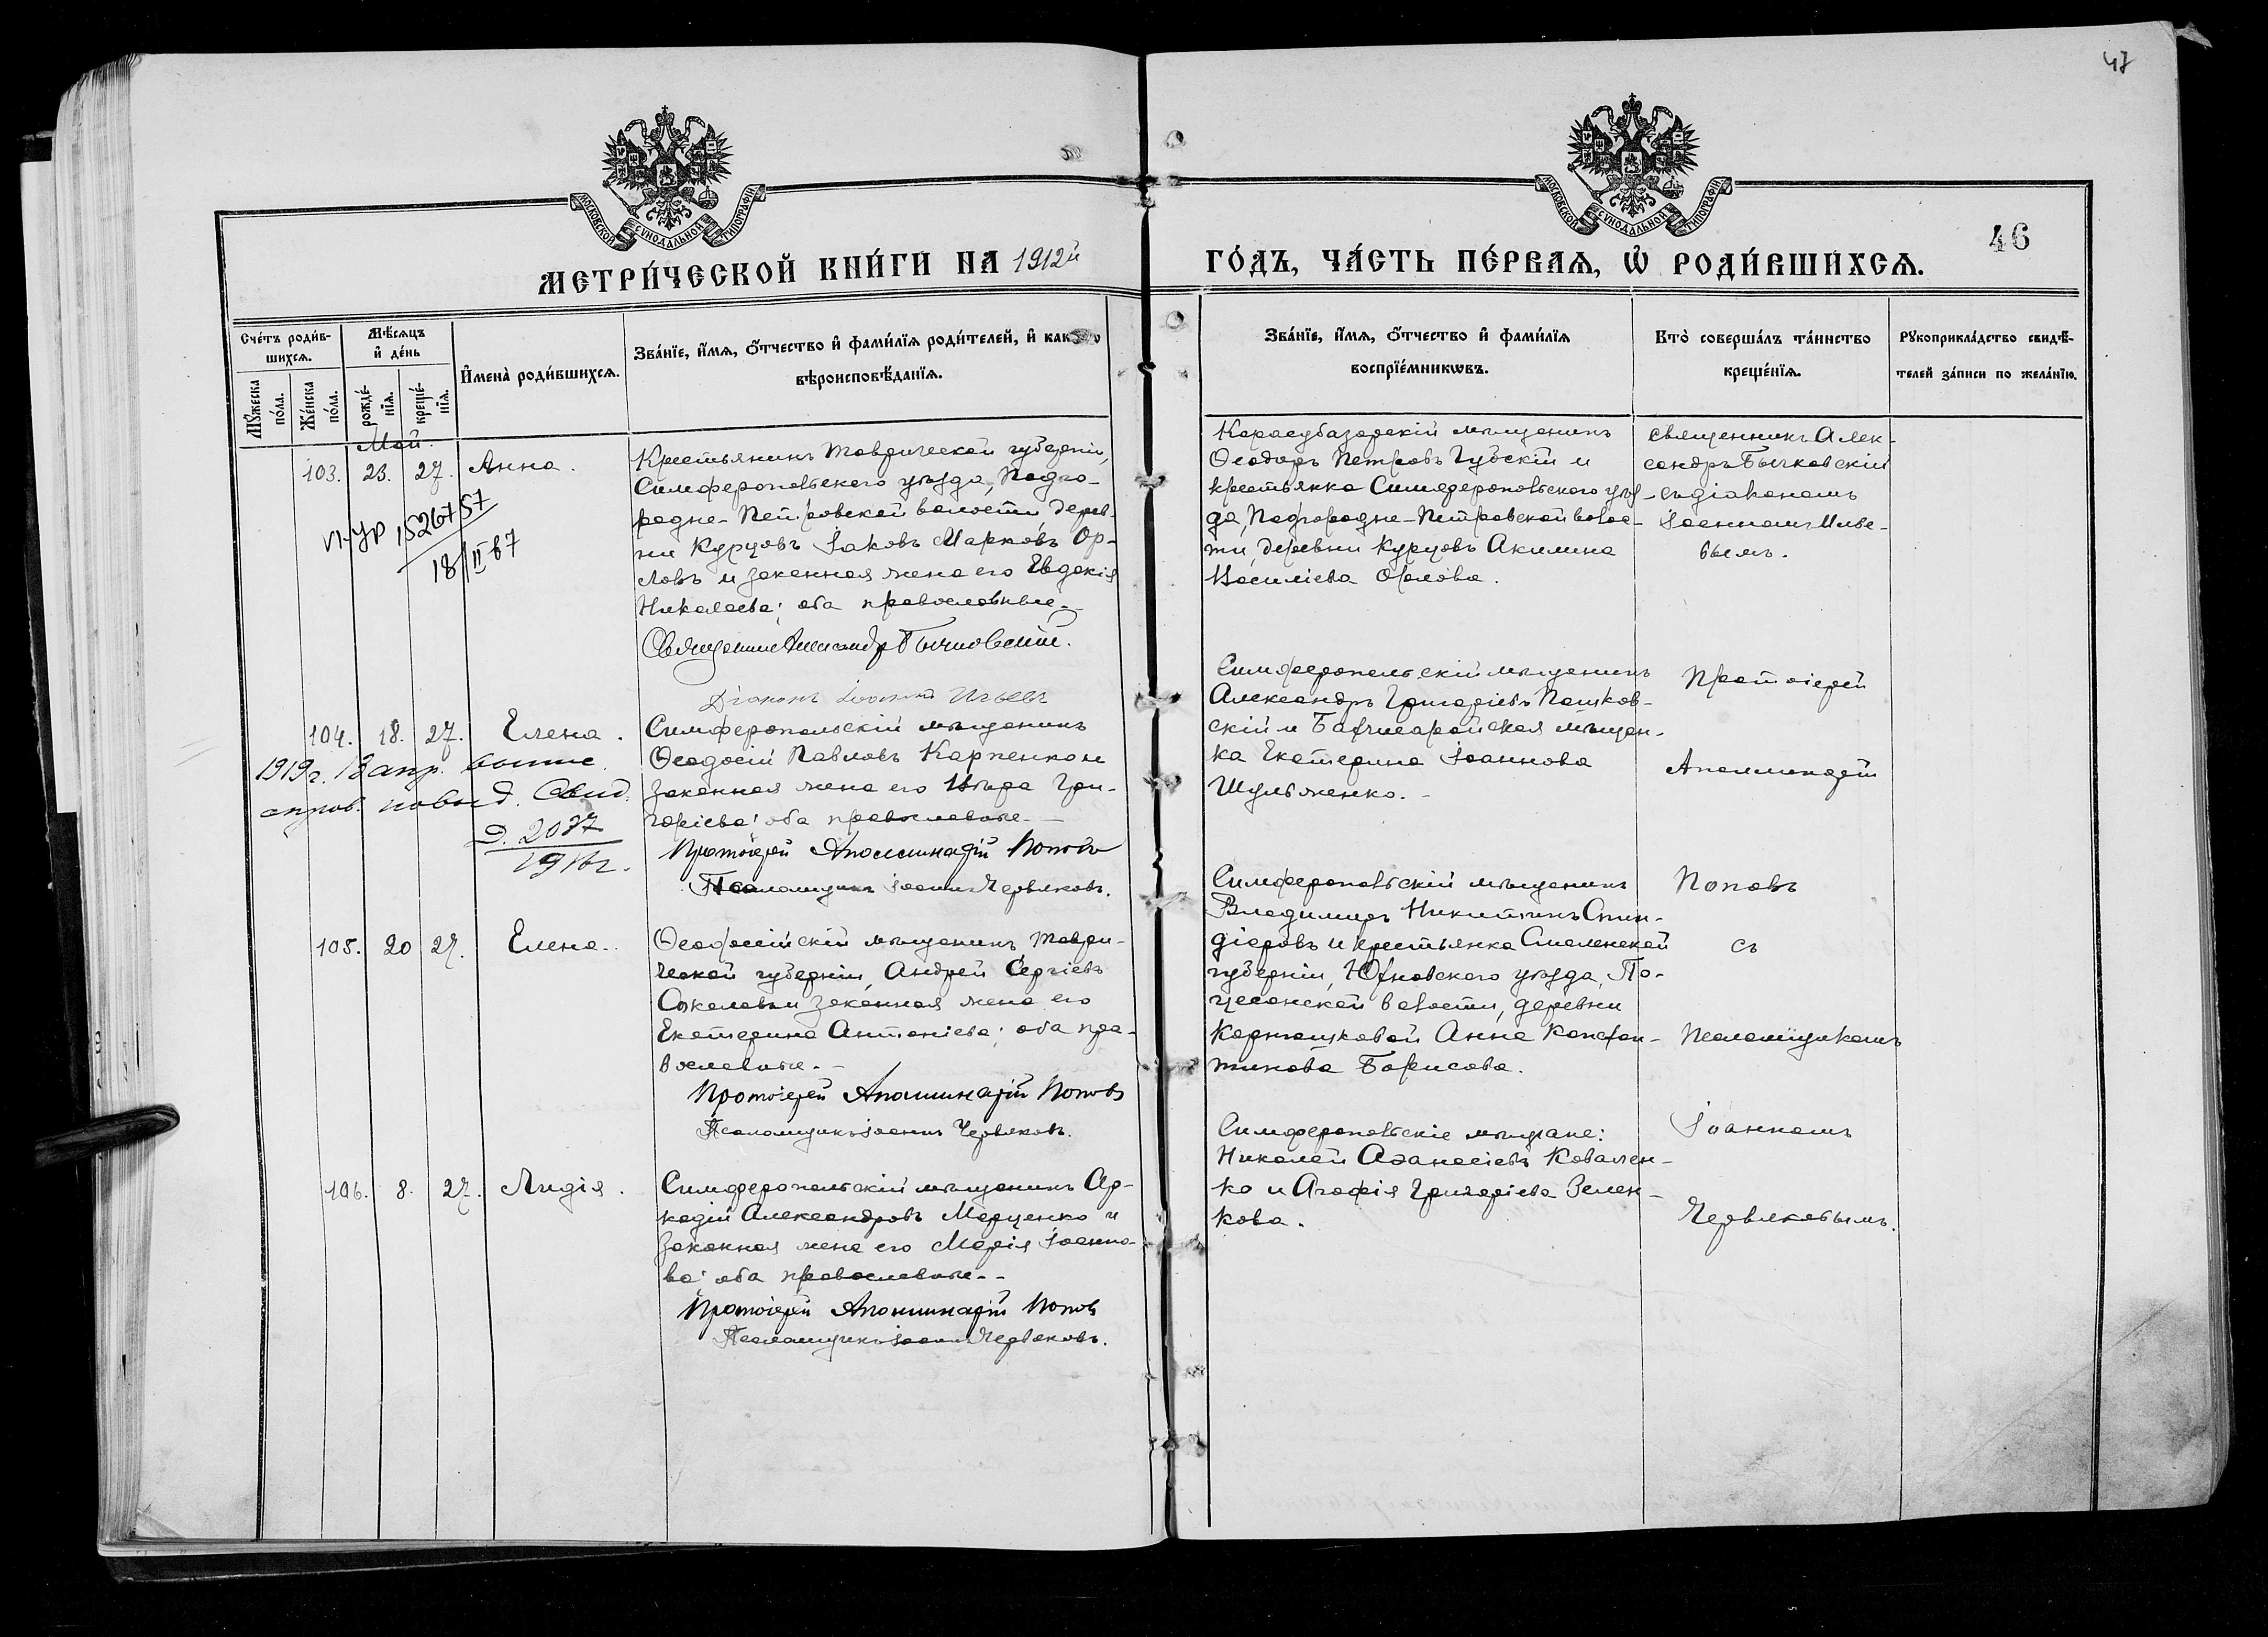 47
МОСКОВСКОЙ СУНОДАЛЬНОЙ ТИПОГРАФІИ
МОСКОВСКОЙ СУНОДАЛЬНОЙ ТИПОГРАФІИ
46
МЕТРИ́ЧЕСКОЙ КНИ́ГИ НА 1912й
ГО́ДЪ, ЧА́СТЬ ПЕ́РВАѦ, Ѡ҆ РОДИ́ВШИХСѦ.
Сче́тъ роди́в-
шихсѧ.
Мꙋ́жеска по́ла.
Же́нска по́ла.
Мѣ́сѧцъ
и҆ де́нь
рожде́-
нїѧ.
креще́-
нїѧ.
И҆мена̀ роди́вшихсѧ.
Зва́нїе, и҆́мѧ, ѻ҆́тчество и҆ фами́лїѧ роди́телей, и҆ како́гѡ
вѣроисповѣ́данїѧ.
Зва́нїе, и҆́мѧ, ѻ҆́тчество и҆ фами́лїѧ
воспрїе́мникѡвъ.
Кто̀ соверша́лъ та́инство
креще́нїѧ.
Рꙋкоприкла́дство свидѣ́-
телей за́писи по жела́нїю.
Май.
103. 23. 27. Анна.
Крестьянинъ Таврической губерніи,
Симферопольскаго уѣзда, Подго-
родне-Петровской волости дерев-
ни Курцовъ Іаковъ Марковъ Ор-
ловъ и законная жена его Евдокія
Николаева; оба православные.
Священникъ Александръ Бычковскій.
Діаконъ Іоаннъ Ильевъ
1526757
18/II 67
Карасубазарскій мѣщанинъ
Ѳеодоръ Петровъ Губскій и
крестьянка Симферопольскаго уѣз-
да, Подгородне-Петровской волос-
ти, деревни Курцовъ Акилина
Василіева Орлова.
Священникъ Алек-
сандръ Бычковскій
съ діакономъ
Іоанномъ Илье-
вымъ.
104. 18. 27. Елена.
1919г. 18 апр.
Д. 2037
1916г.
Симферопольскій мѣщанинъ
Ѳеодосій Павловъ Карпенко и
законная жена его Вѣра Гри-
горіева; оба православные.
Протоіерей Аполлинарій Поповъ
Псаломщикъ Іоаннъ Червяковъ.
Симферопольскій мѣщанинъ
Александръ Григоріевъ Пашков-
скій и Бахчисарайская мѣщан-
ка Екатерина Іоаннова
Шульженко.
Протоіерей
Аполлинарій
Поповъ
съ
Псаломщикомъ
Іоанномъ
Червяковымъ.
105. 20 27. Елена.
Ѳеодосійскій мѣщанинъ, Таври-
ческой губерніи, Андрей Сергіевъ
Соколовъ и законная жена его
Екатерина Антоніева; оба пра-
вославные.
Протоіерей Аполлинарій Поповъ
Псаломщикъ Іоаннъ Червяковъ.
Симферопольскій мѣщанинъ
Владимиръ Никитинъ Спин-
діаровъ и крестьянка Смоленской
губерніи, Юхновскаго уѣзда, По-
деревни
Анна Констан-
тинова Борисова.
106. 8. 27. Лидія.
Симферопольскій мѣщанинъ Ар-
кадій Александровъ Марценко и
законная жена его Марія Іоанно-
ва; оба православные.
Протоіерей Аполлинарій Поповъ
Псаломщикъ Іоаннъ Червяковъ.
Симферопольскіе мѣщане:
Николай Аѳанасіевъ Ковален-
ко и Агафія Григоріева Зелен-
кова.